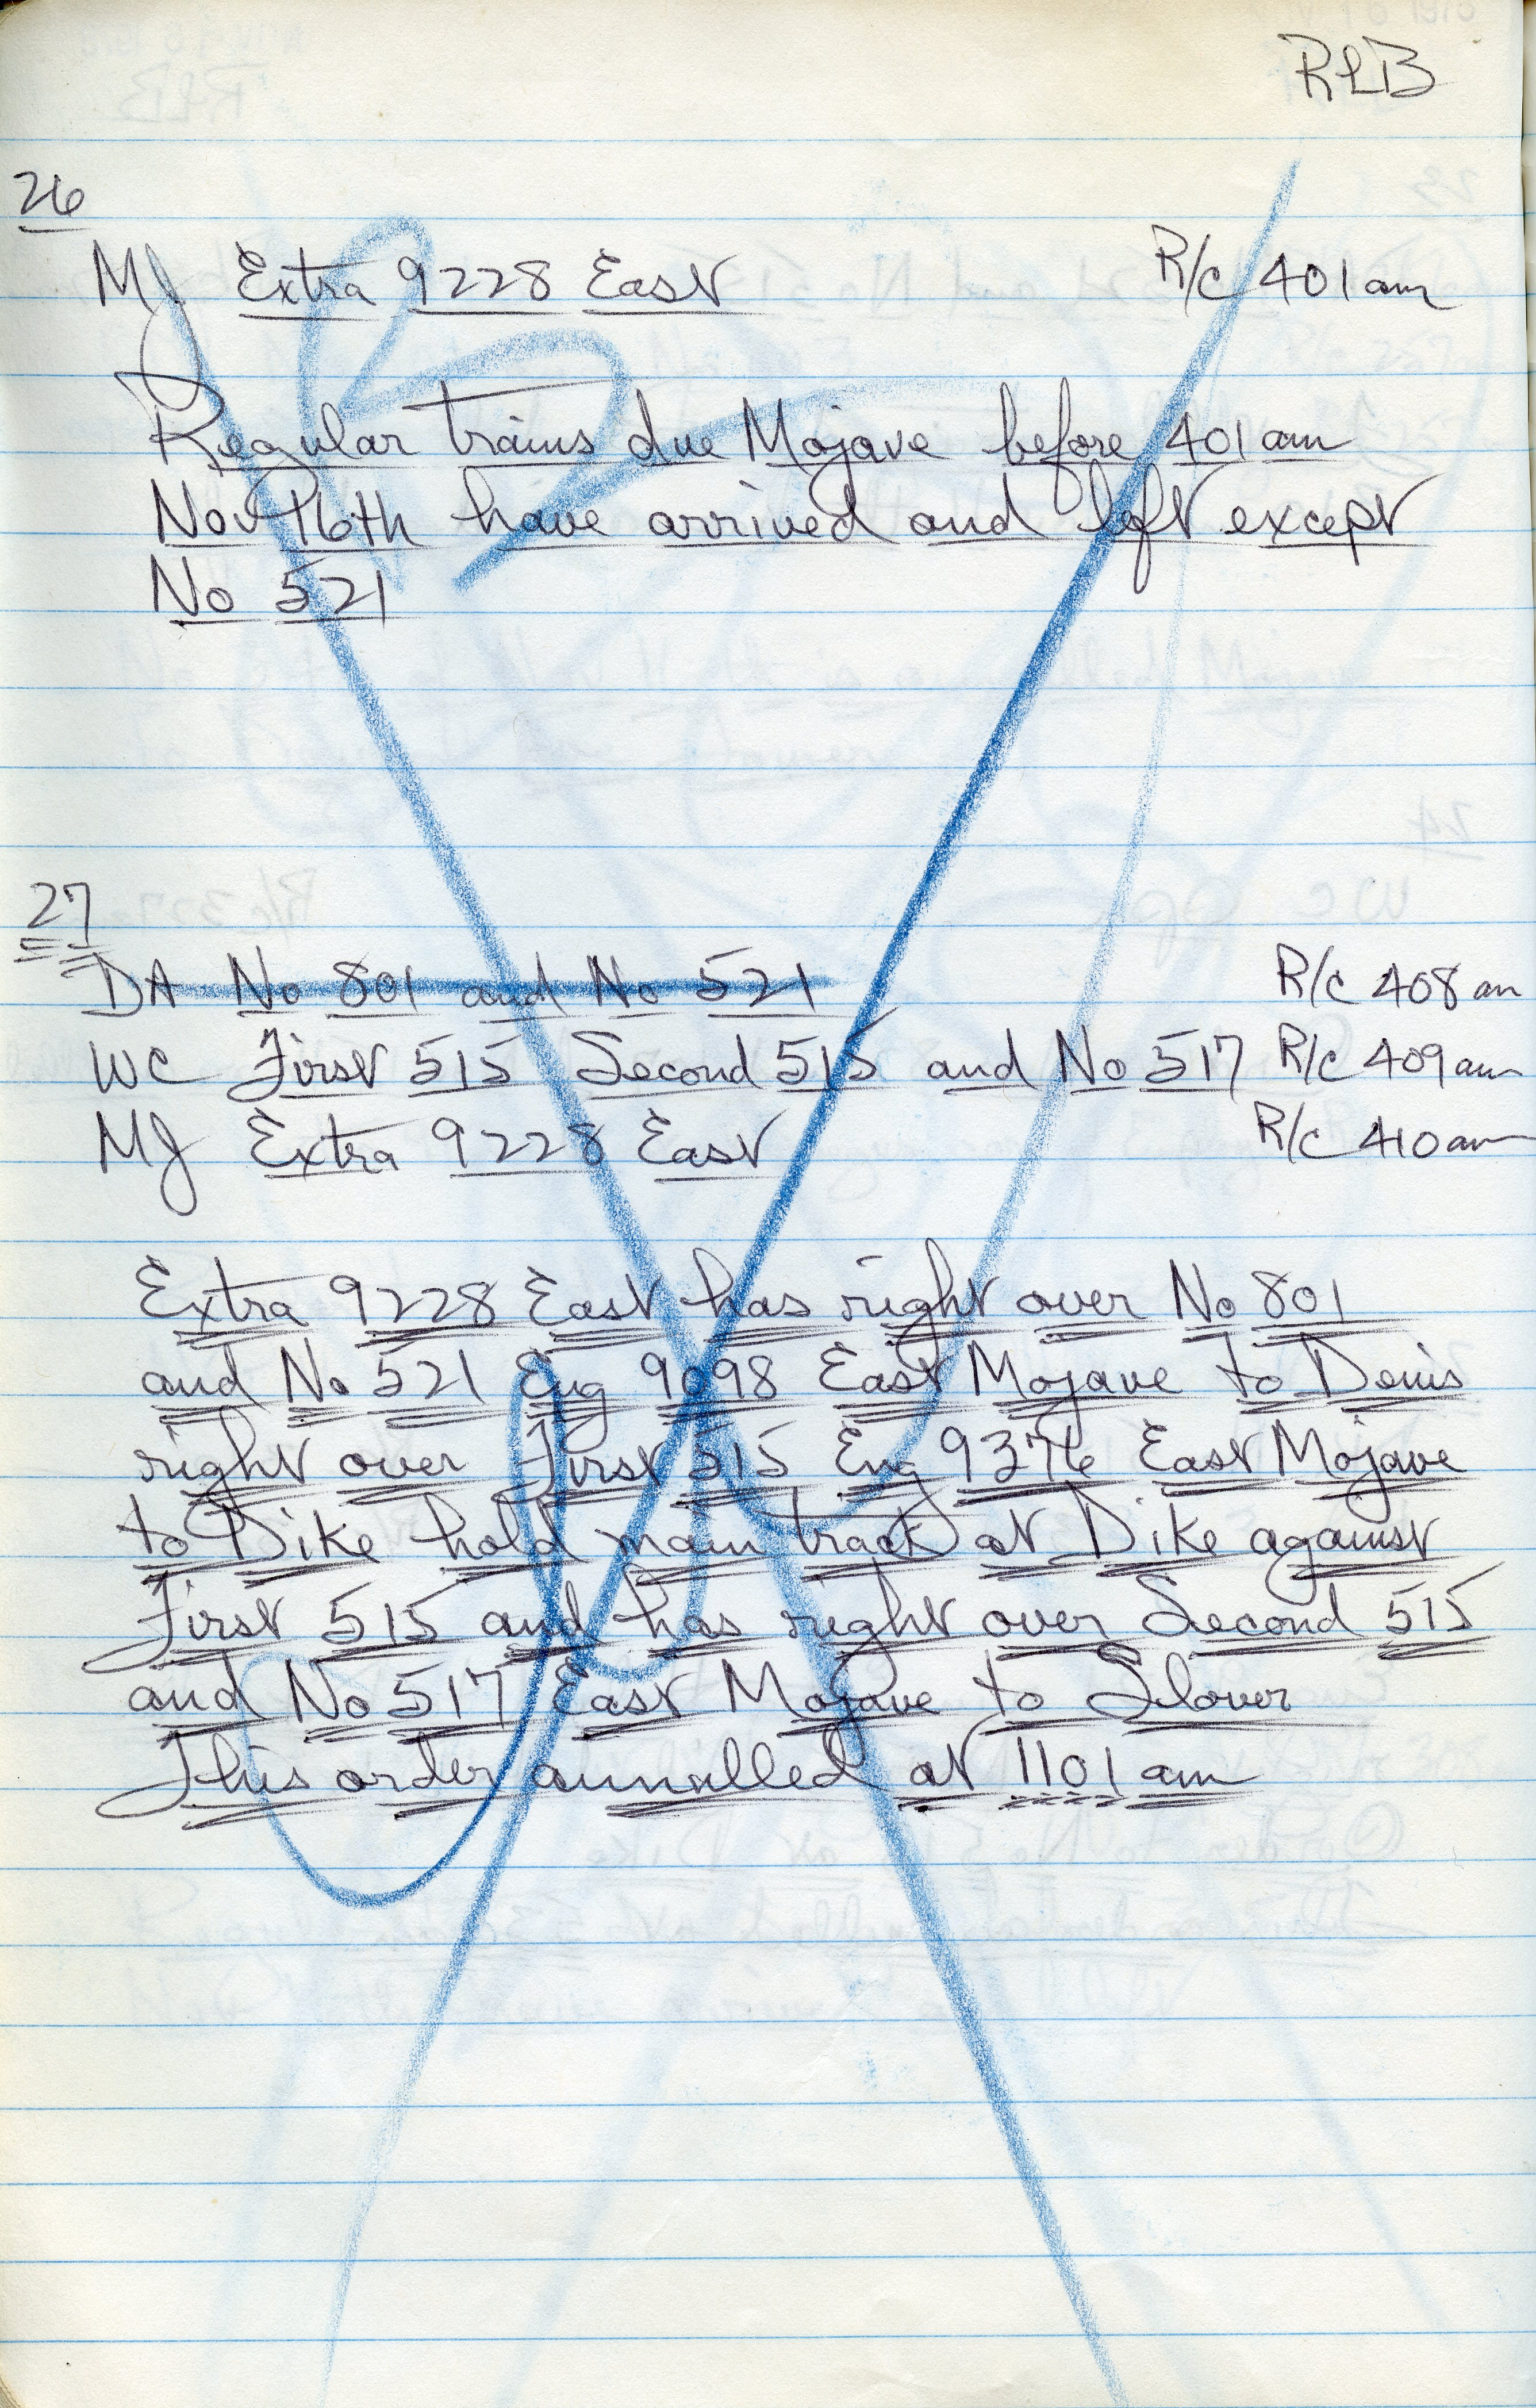 RLB
26
MJ Extra 9228 East R/c 401 am
Regular trains due Mojave before 401 am
Nov 16th have arrived and left except
No 521
27
DA No 801 and No 521 R/c 408 am
WC First 515 Second 515 and No 517 R/c 409 am
MJ Extra 9228 East R/c 410 am
Extra 9228 East has right over No 801
and No 521 Eng 9098 East Mojave to Denis
right over First 515 Eng 9376 East Mojave
to Dike hold main track at Dike against
First 515 and has right over Second 515
and No 517 East Mojave to Slover
This order annulled at 1101 am